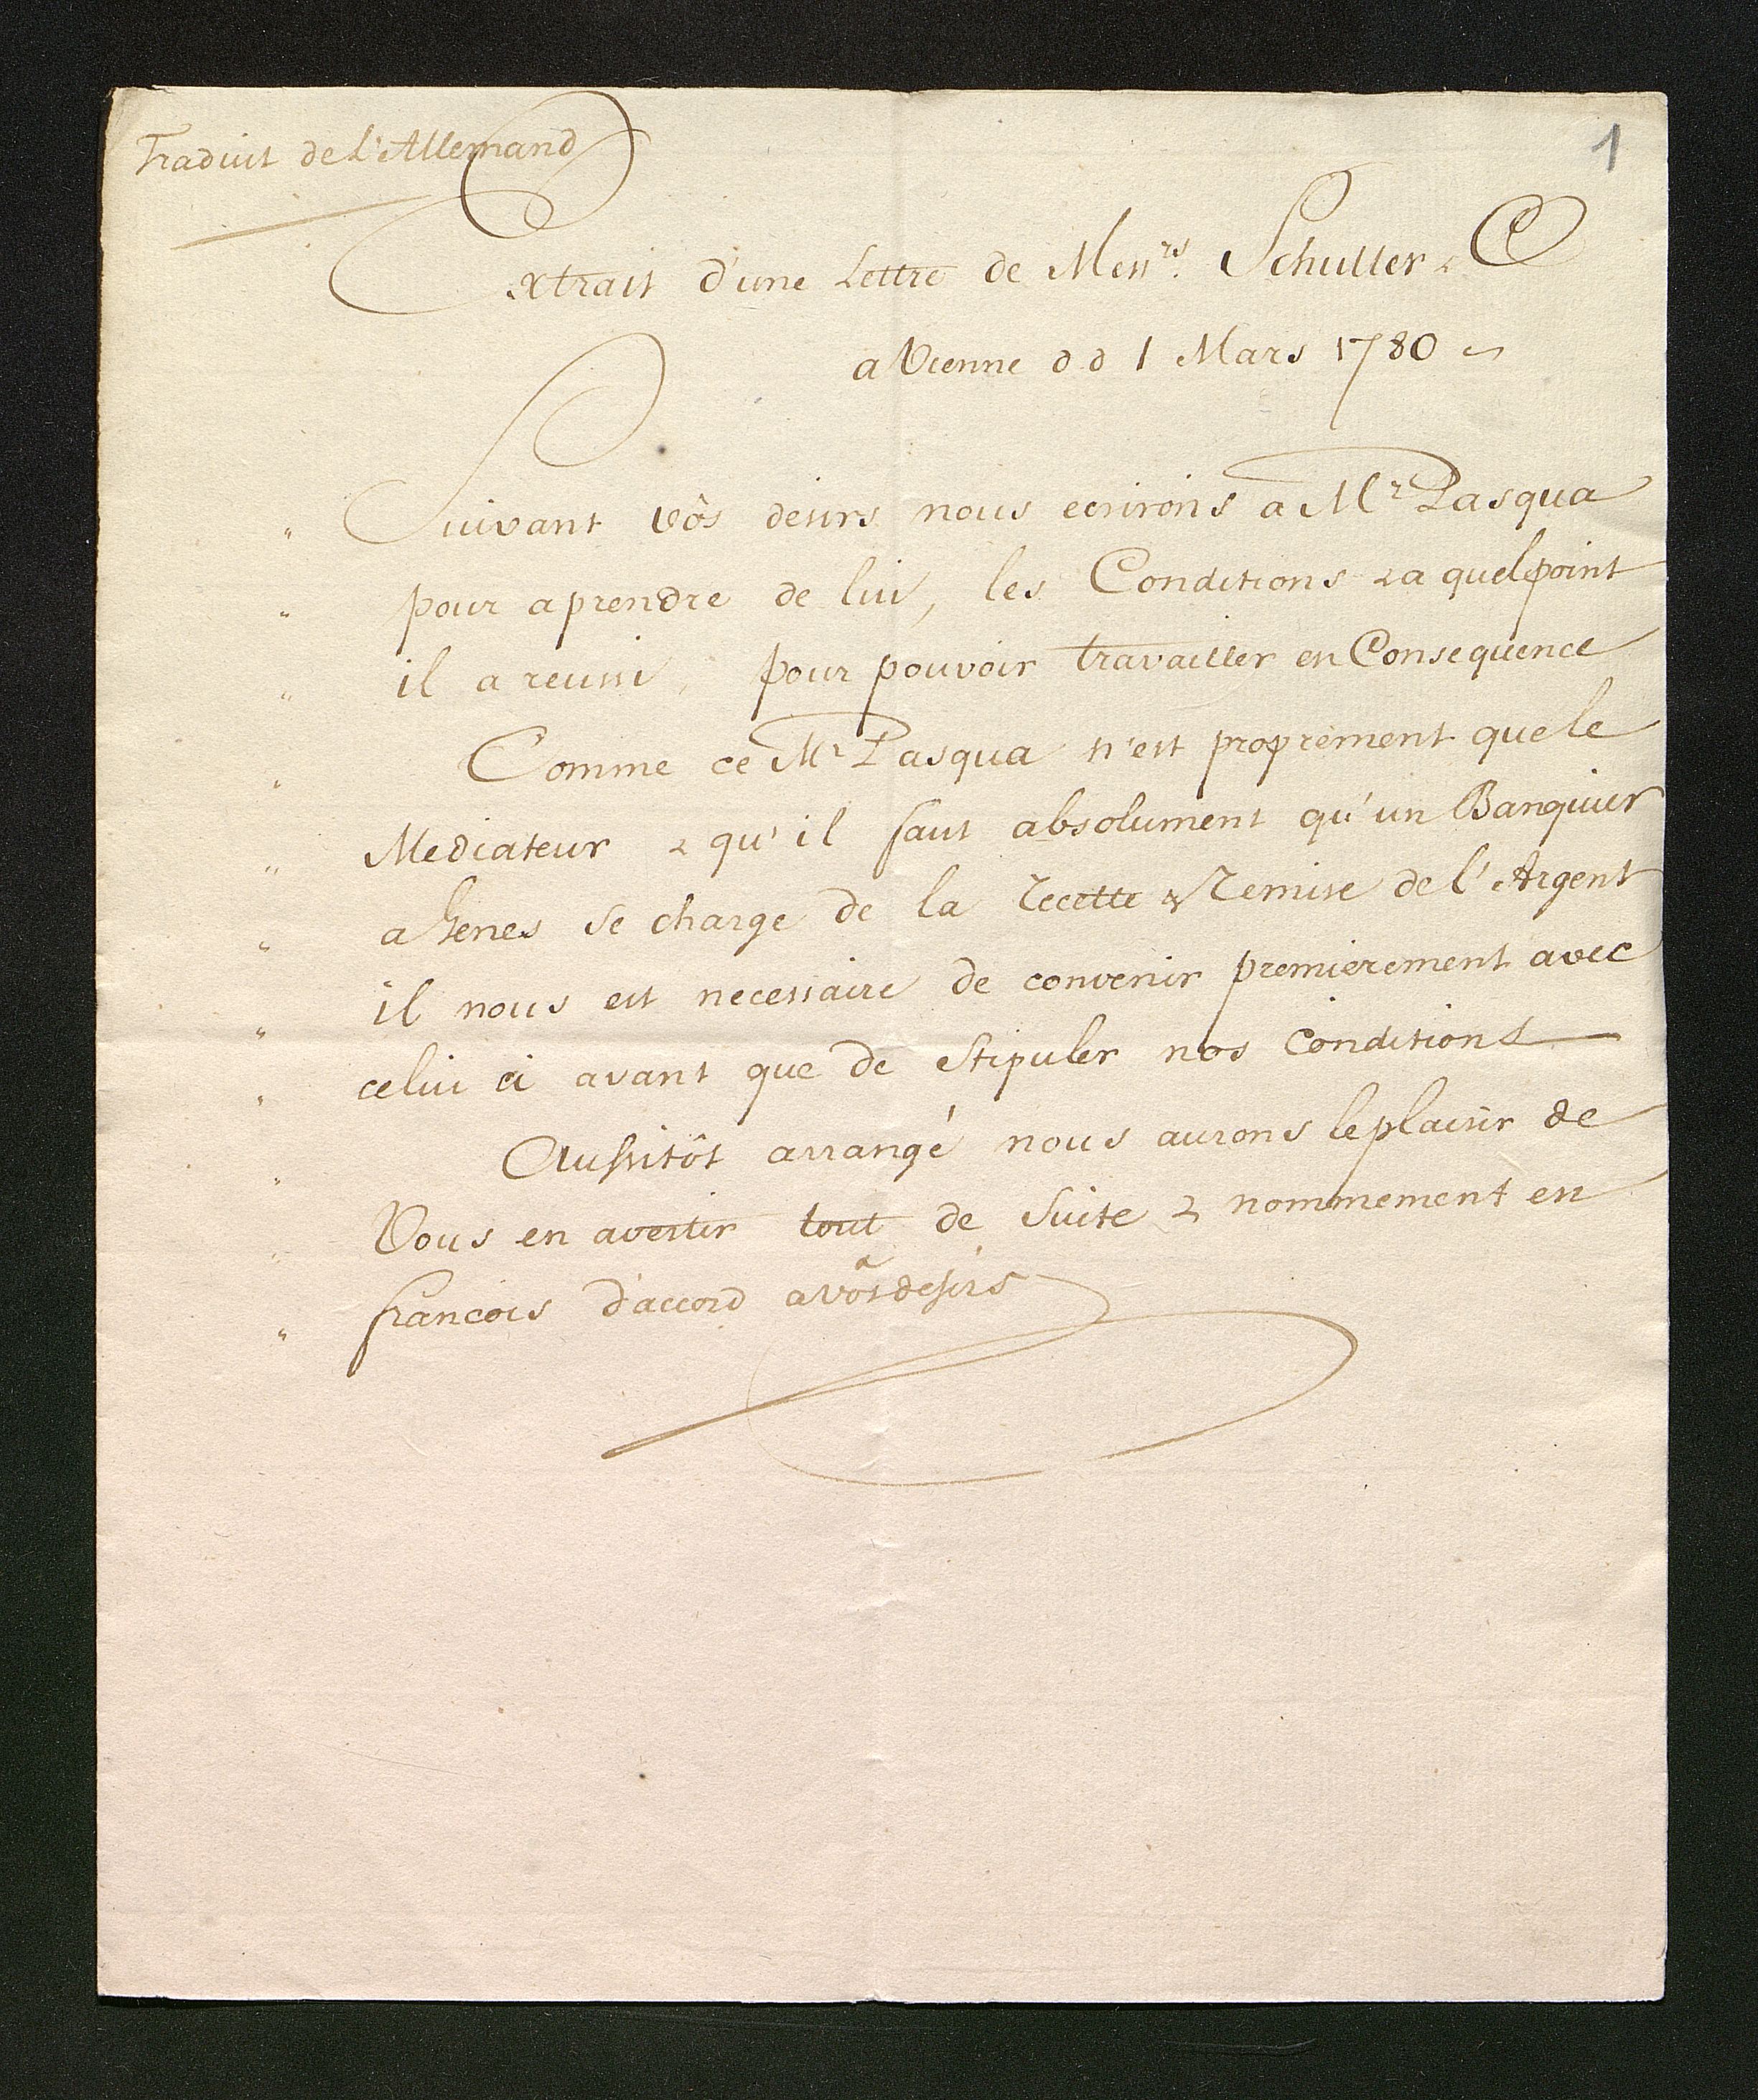 Traduit de L'Allemand
1
Extrait d'une Lettre de Mess.rs Schuller & C
a Vienne d d 1 Mars 1780
" Suivant vôs desirs nous ecrirons a Mr Pasqua
" pour aprendre de lui, les Conditions & a quel point
" il a reussi, pour pouvoir travailler en Consequence
" Comme ce Mr Pasqua n'est proprement que le
" Mediateur & qu'il faut absolument qu'un Banquier
" a Genes se charge de la recette & remise de l'Argent
" il nous est necessaire de convenir premierement avec
" celui ci avant que de stipuler nos Conditions
" Aussitôt arrangé nous aurons le plaisir de
" Vous en avertir tout de suite & nommement en
" francois d'accord a vôs desirs